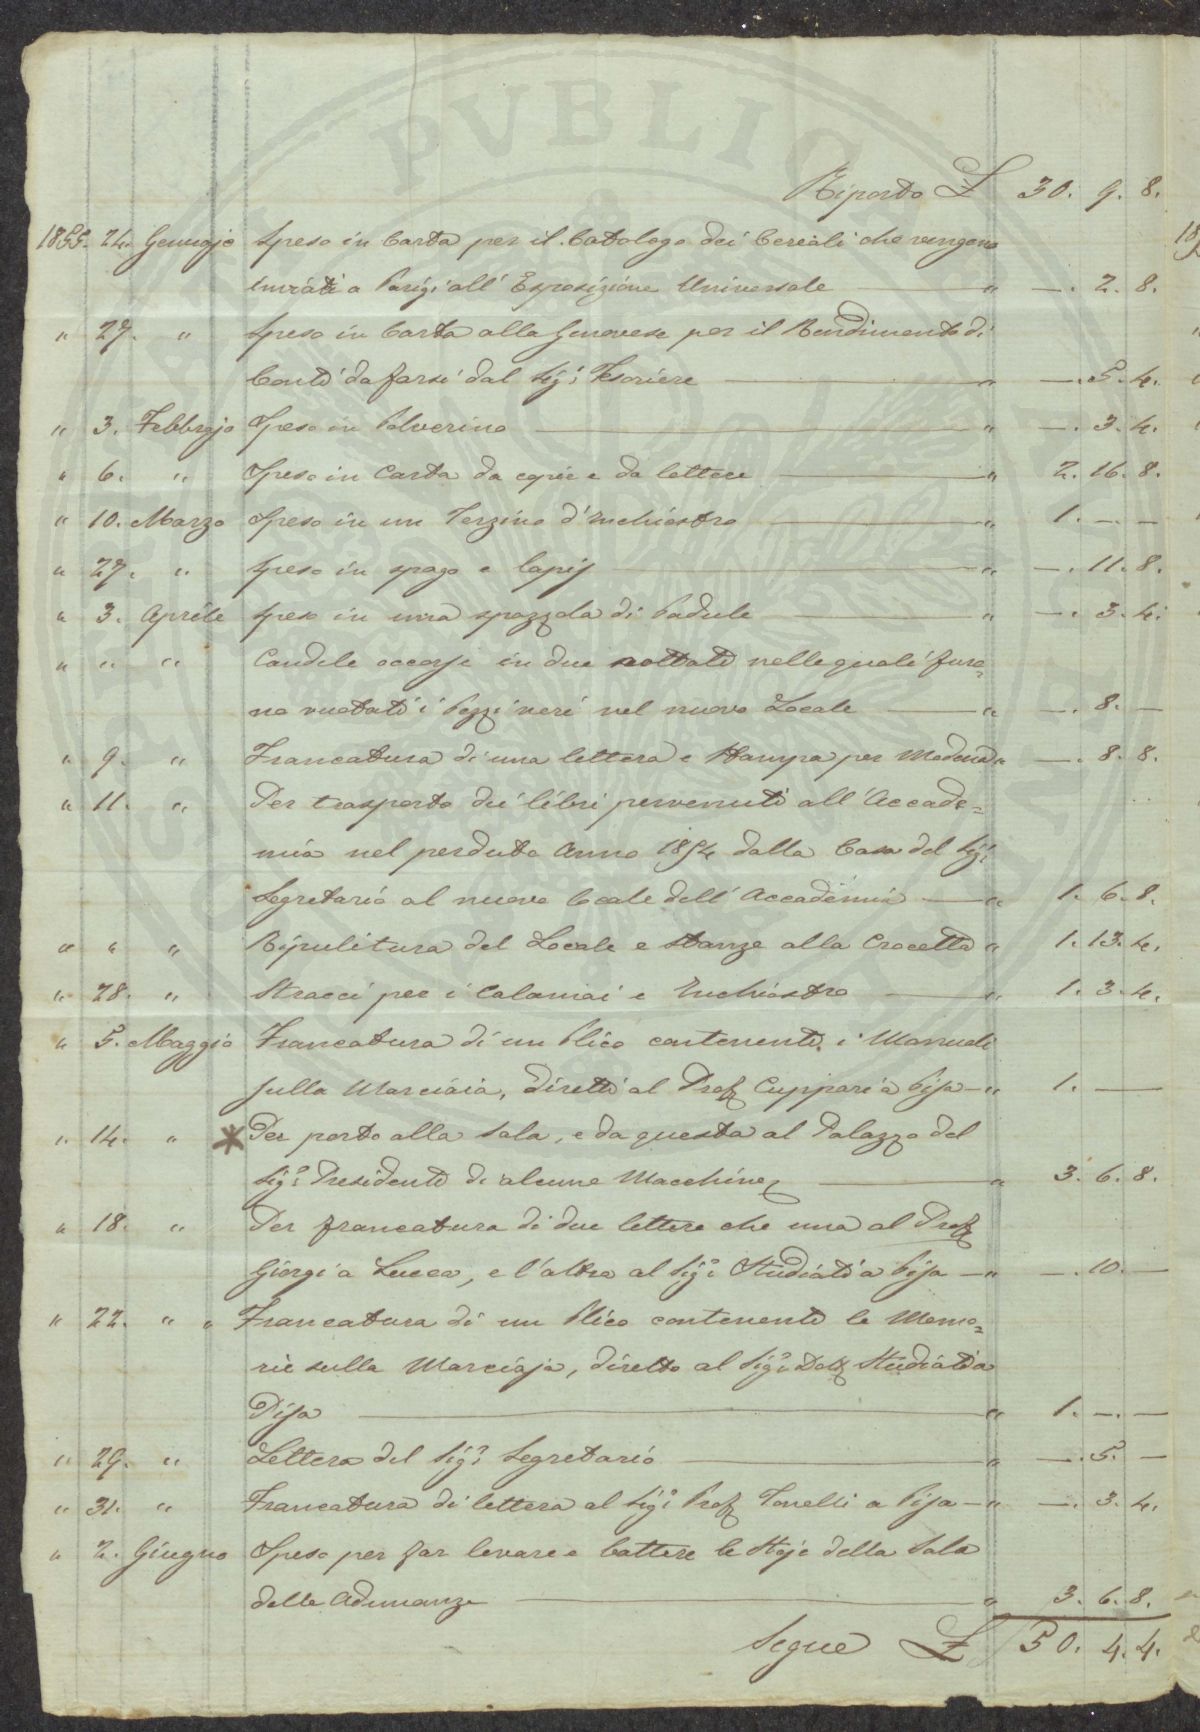 Riporto £ 30. 9. 8.
1855. 24. Gennajo Speso in Carta per il Catalogo dei Cereali che vengono
inviati a Parigi all' Esposizione Universale " —. 2. 8.
" 27. " Speso in Carta alla Genovese per il Rendimento di
Conti da farsi dal Sigr. Tesoriere " —. 5. 4.
" 3. Febbrajo Speso in Polverino " —. 3. 4.
" 6. " Speso in Carta da copie e da lettere " 2. 16. 8.
" 10. Marzo Speso in un Terzino d'Inchiostro " 1. —. —
" 27. " Speso in spago e lapis " —. 11. 8.
" 3. Aprile Speso in una spazzola di Padule " —. 3. 4.
" " " Candele occorse in due nottate nelle quali furo=
no vuotati i Pozzi neri nel nuovo Locale " —. 8. —
" 9. " Francatura di una lettera e Stampa per Modena " —. 8. 8.
" 11. " Per trasporto dei libri pervenuti all' Accade=
mia nel perduto Anno 1854 dalla Casa del Sigr.
Segretario al nuovo locale dell' Accademia " 1. 6. 8.
" " " Ripulitura del Locale e Stanze alla Crocetta " 1. 13. 4.
" 28. " Stracci per i Calamai e Inchiostro " 1. 3. 4.
" 5. Maggio Francatura di un Plico contenente i Manuali
sulla Marciaia, diretti al Prof. Cuppari a Pisa " 1. —
" 14. " * Per porto alla Sala, e da questa al Palazzo del
Sigr. Presidente di alcune Macchine " 3. 6. 8.
" 18. " Per francatura di due lettere che una al Prof.
Giorgi a Lucca, e l'altra al Sigr. Studiati a Pisa " —. 10. —
" 22. " " Francatura di un Plico contenente le Memo=
rie sulla Marciaja, diretto al Sigr. Dott. Studiati a
Pisa " 1. —. —
" 29. " Lettera del Sigr. Segretario " —. 5. —
" 31. " Francatura di lettera al Sigr. Prof. Tonelli a Pisa " —. 3. 4.
" 2. Giugno Speso per far levare e battere le Stoje della Sala
delle Adunanze " 3. 6. 8.
Segue £ 50. 4. 4.